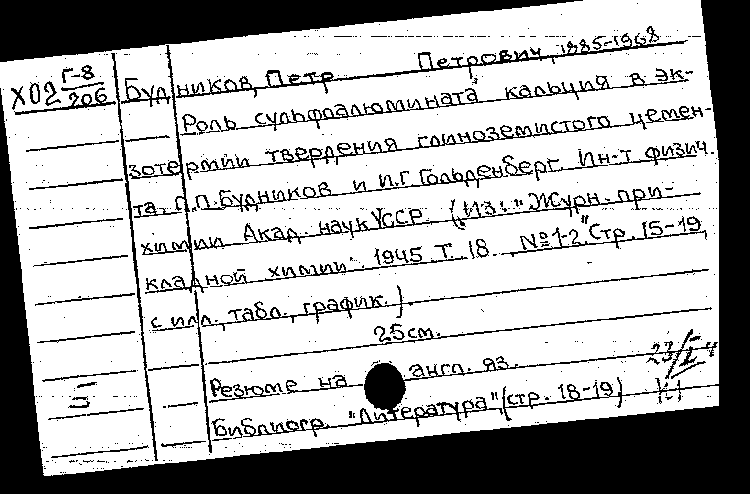 Х02 Г-8/206 Будников, Петр Петрович, 1885-1968
Роль сульфоалюмината кальция в эк-
зотермии твердения глиноземистого цемен-
та. П.П.Будников и И.Г.Гольденберг. Ин-т физич.
химии Акад. наук УССР. (Из: "Журн. при-
кладной химии". 1945 Т. 18, №1-2" Стр. 15-19,
с илл., табл., график.).
25см.
Резюме на англ. яз.
Библиогр. "Литература" (стр. 18-19)
5